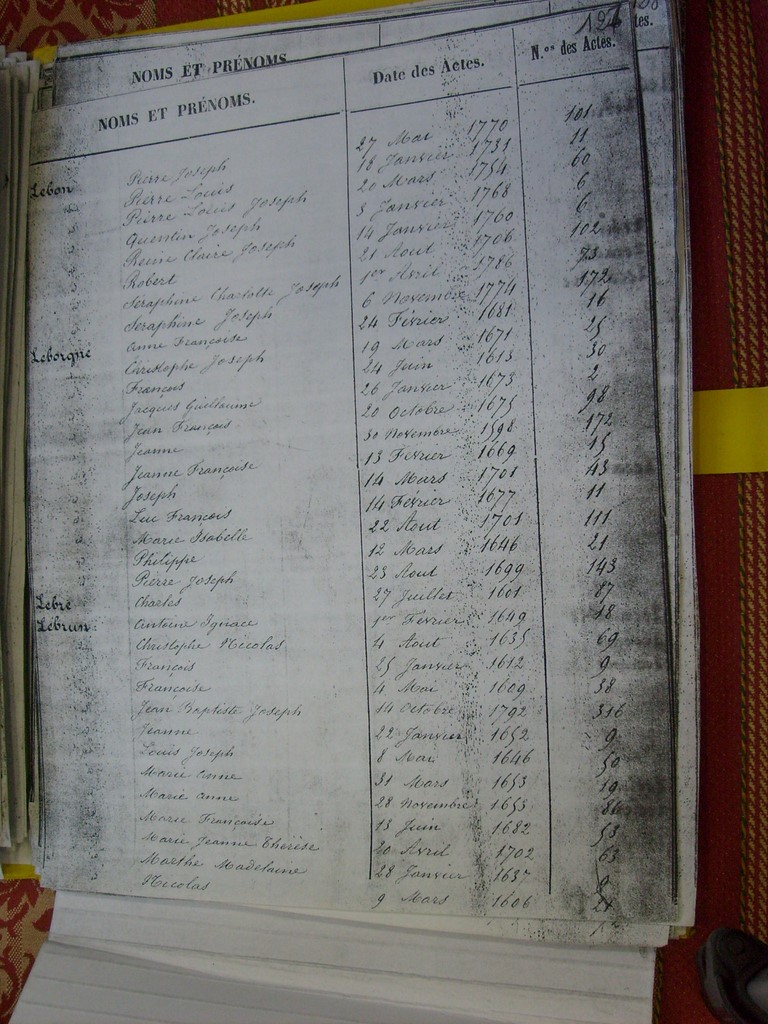 128
tes.
NOMS ET PRÉNOMS
126
NOMS ET PRÉNOMS. Date des Actes. N.os des Actes.
Lebon Pierre Joseph 27 Mai 1770 101
Pierre Louis 18 Janvier 1731 11
Pierre Louis Joseph 20 Mars 1754 60
Quentin Joseph 3 Janvier 1768 6
Reine Claire Joseph 14 Janvier 1760 6
Robert 21 Aout 1706 102
Seraphine Charlotte Joseph 1er Avril 1786 73
Seraphine Joseph 6 Novembre 1774 172
Leborgne Anne Françoise 24 Février 1681 16
Christophe Joseph 19 Mars 1671 25
François 24 Juin 1613 30
Jacques Guillaume 26 Janvier 1673 2
Jean François 20 Octobre 1675 98
Jeanne 30 Novembre 1598 172
Jeanne Françoise 13 Février 1669 15
Joseph 14 Mars 1701 43
Luc François 14 Février 1677 11
Marie Isabelle 22 Aout 1701 111
Philippe 12 Mars 1646 21
Pierre Joseph 23 Aout 1699 143
Lebre Charles 27 Juillet 1601 87
Lebrun Antoine Ignace 1er Février 1649 18
Christophe Nicolas 4 Aout 1635 69
François 25 Janvier 1612 9
Françoise 4 Mai 1609 38
Jean Baptiste Joseph 14 Octobre 1792 316
Jeanne 22 Janvier 1652 9
Louis Joseph 8 Mai 1646 50
Marie Anne 31 Mars 1653 19
Marie Anne 28 Novembre 1653 86
Marie Françoise 13 Juin 1682 53
Marie Jeanne Thérèse 20 Avril 1702 63
Marthe Madelaine 28 Janvier 1637 9
Nicolas 9 Mars 1606 21